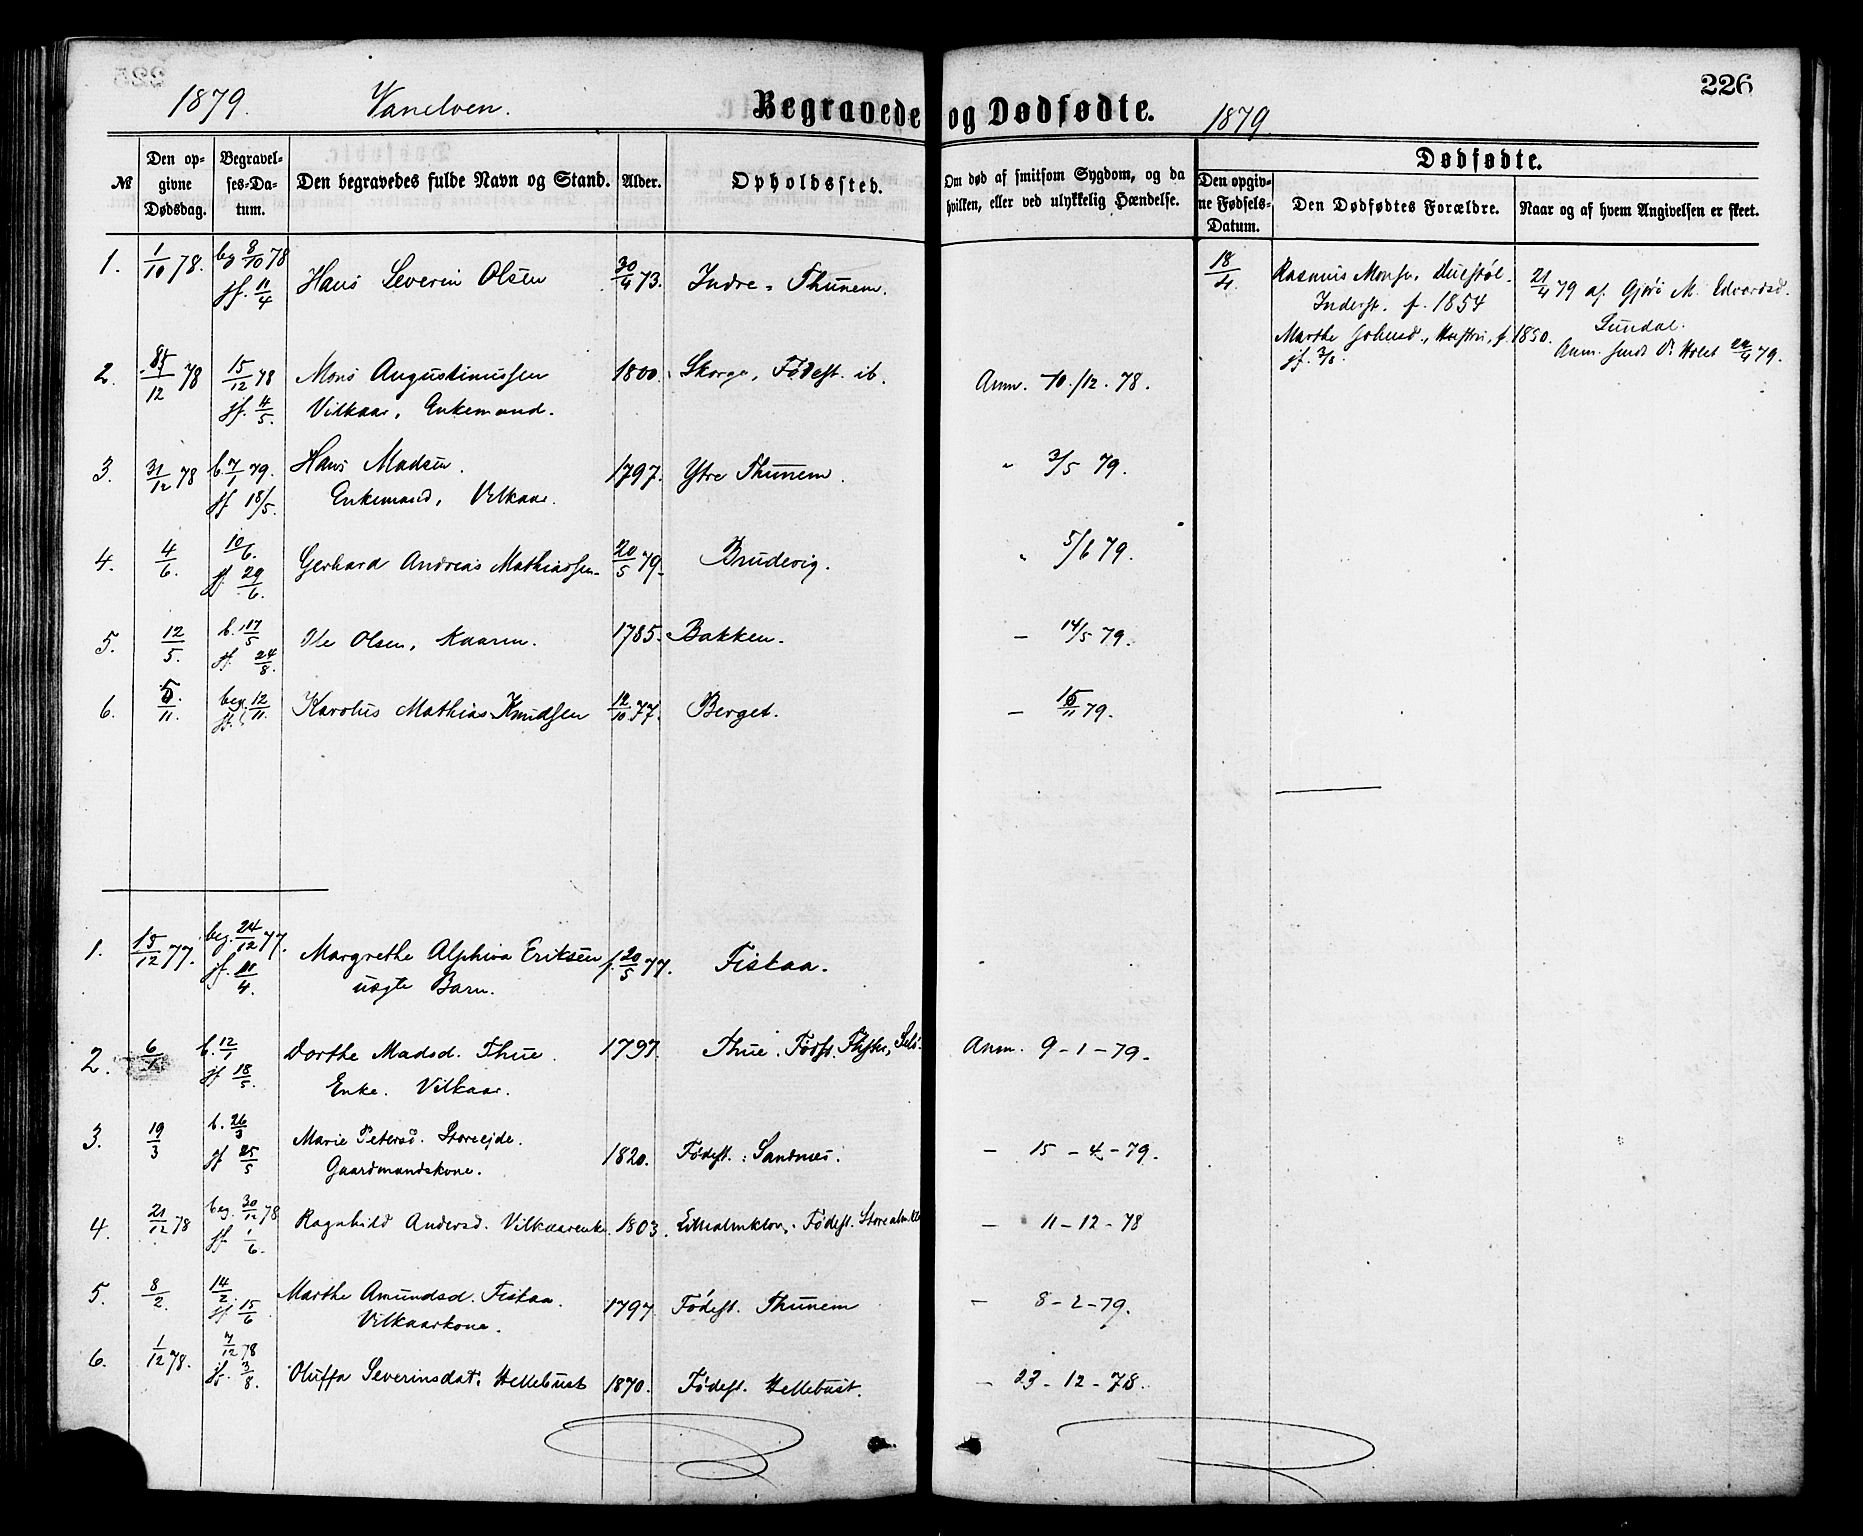 1879. Vanelven. Begravede og Dødfødte. 1879 226
№ Den opgivne Dødsdag. Begravelses-Datum. Den begravedes fulde Navn og Stand. Alder. Opholdssted. Om død af smitsom Sygdom, og da hvilken, eller ved ulykkelig Hændelse. Den opgivne Fødsels-Datum. Dødfødte. Den Dødfødtes Forældre. Naar og af hvem Angivelsen er skeet.
1. 1/10 78. beg 8/10 78 Hans Severin Olsen 30/4 73. Indre-Thunem. 18/4. Rasmus Monsen 21/4 79 af Gjøri M. Edvardsd.
jf. 11/4 Inderst. f. 1854 Lundal.
Marthe f. 1850. Anm. 79.
2. 12 78 15/12 78 Mons Augustinussen 1800. Skorge, Fødest. ib. Anm. 10./12. 78.
jf. 4/5. Vilkaar, Enkemand.
3. 31/12 78 b. 7/1 79. Hans Madsen. 1797. Ytre Thunem. " 3/5 79.
jf 18/5. Enkemand, Vilkaar.
4. 4/6. 10/6. Gerhard Andreas Mathiassen 20/5 79. Brudevig. " 5/6 79.
jf. 29/6.
5. 12/5. b. 17/5 Ole Olsen, Kaarm. 1785. Bakken. — 14/5 79.
jf. 24/8.
6. 5/11. beg. 12/11. Karolus Mathias Knudsen 12/10 77. Berget. — 15/11 79.
1. 15/12 77. beg. 24/12 77. Margrethe Alphiva Eriksen f. 20/5 77. Fiskaa.
jf. 21/4. uægte Barn.
2. 6/1 b. 12/1 Dorthe Madsd. Thue. 1797. Thue. Anm. 9-1-79.
jf 18/5. Enke. Vilkaar.
3. 19/3 b. 26/3 Marie Petersd. Storeejde. 1820. Fødest.: Sandnes. — 15-4-79.
jf 25/5 Gaardmandskone.
4. 21/12 78 beg. 30/12 78 Ragnhild Andersd. Vilkaarenke 1803. Fødest. — 11-12-78
jf 1/6.
5. 8/2. 14/2. Marthe Amundsd. Fiskaa. 1797. Fødest. Thunem — 8-2-79.
jf 15/6 Vilkaarkone.
6. 1/12 78. 7/12 78 Oluffa Severinsdat. Hellebust 1870. Fødest. Hellebust. — 23-12-78.
jf. 3/8.